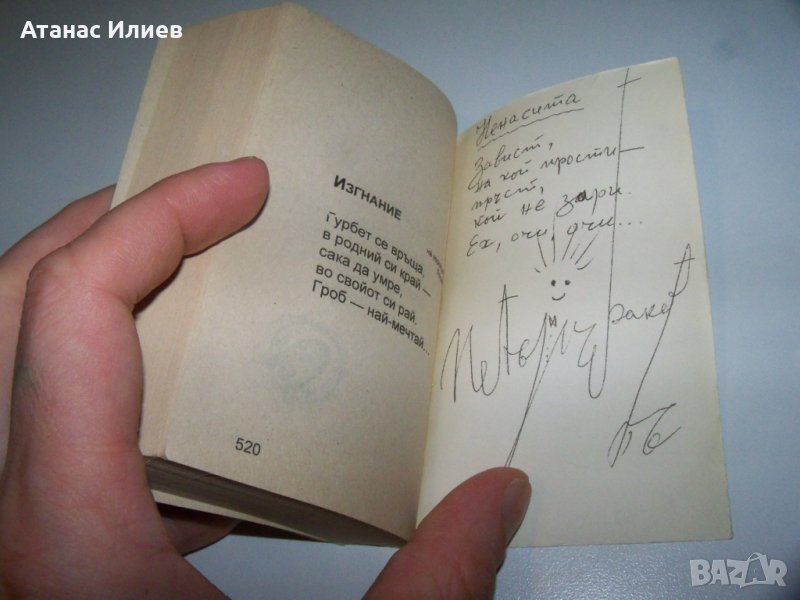 Атанас Илиев
ИЗГНАНИЕ
Гурбет се връща,
в родний си край —
сака да умре,
во свойот си рай.
Гроб — най-мечтай...
520
Ненасита
Завист,
на кой прости—
пръст,
кой не зари.
Ех, очи, очи...
BAZAR
bg